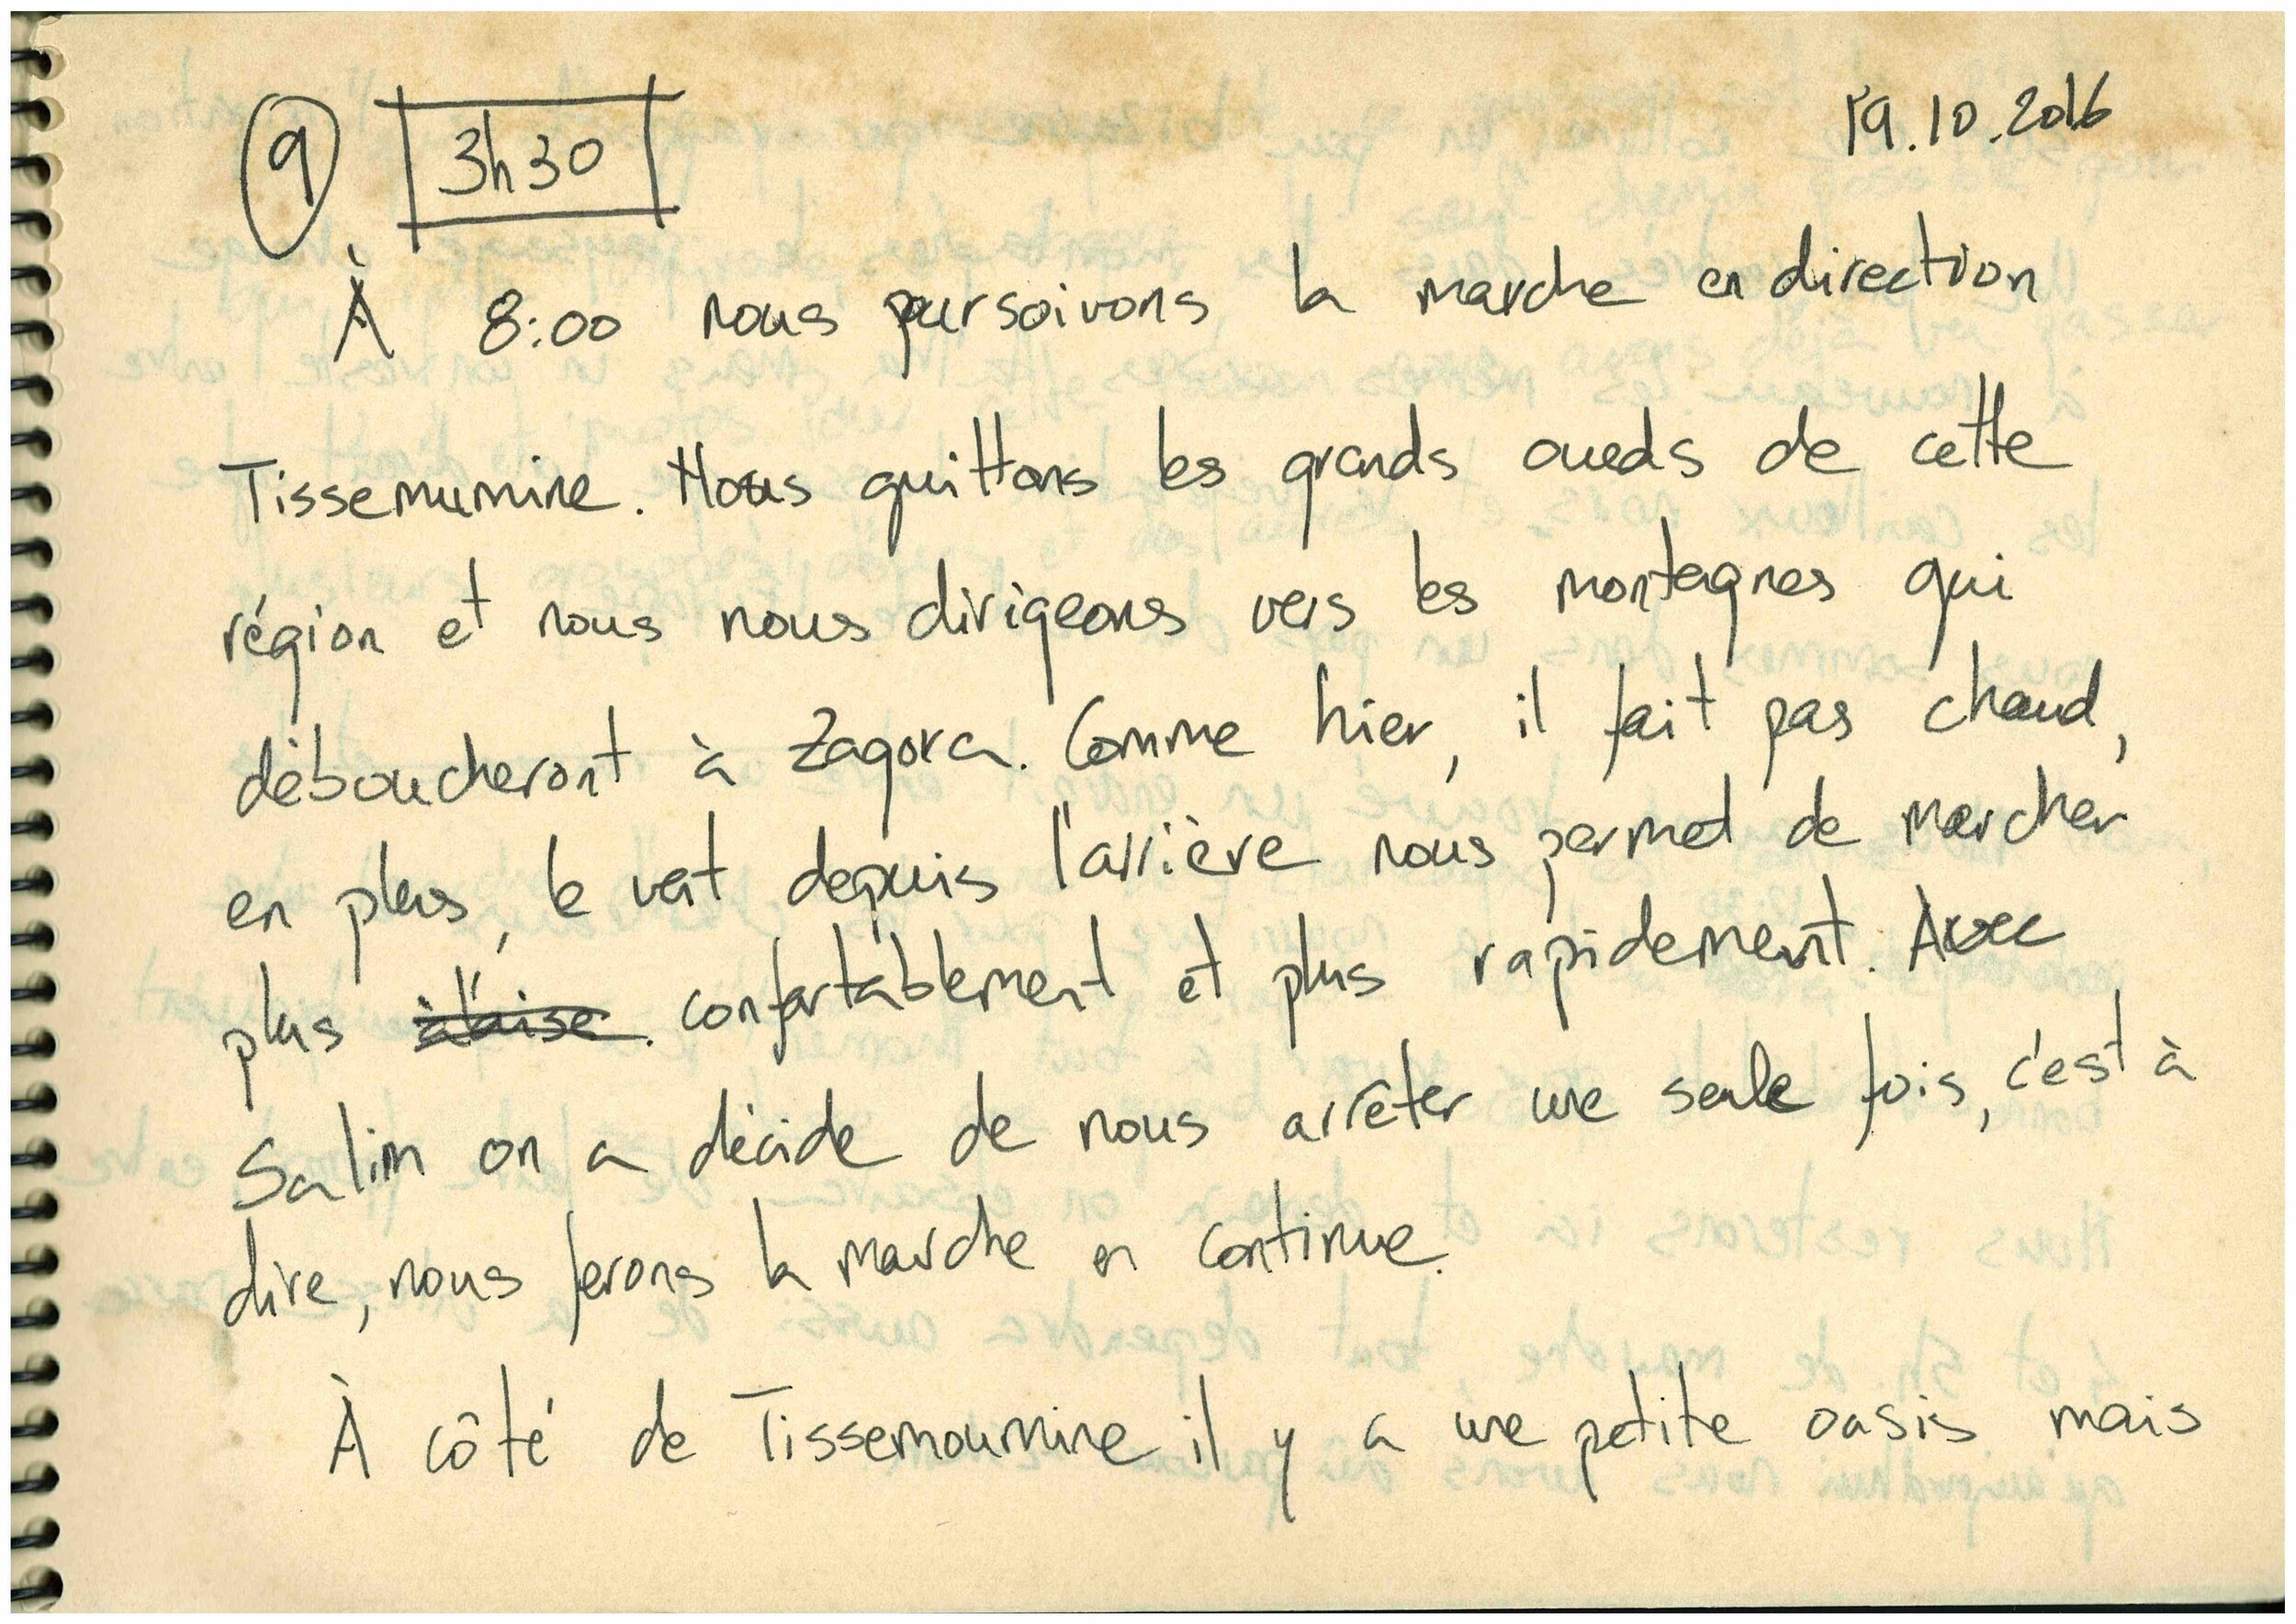 9 3h30 19.10.2016
À 8:00 nous poursoivons la marche en direction
Tissemumine. Nous quittons les grands oueds de cette
région et nous nous dirigeons vers les montagnes qui
déboucheront à Zagora. Comme hier, il fait pas chaud,
en plus, le vent depuis l'arrière nous permet de marcher
plus à l'aise. confortablement et plus rapidement. Avec
Salim on a décide de nous arrêter une seule fois, c'est à
dire, nous ferons la marche en continue.
À côté de Tissemoumine il y a une petite oasis mais